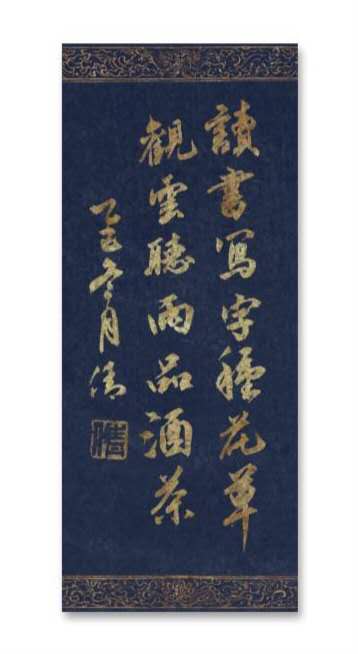 讀書寫字種花草
觀雲聽雨品酒茶
冬月